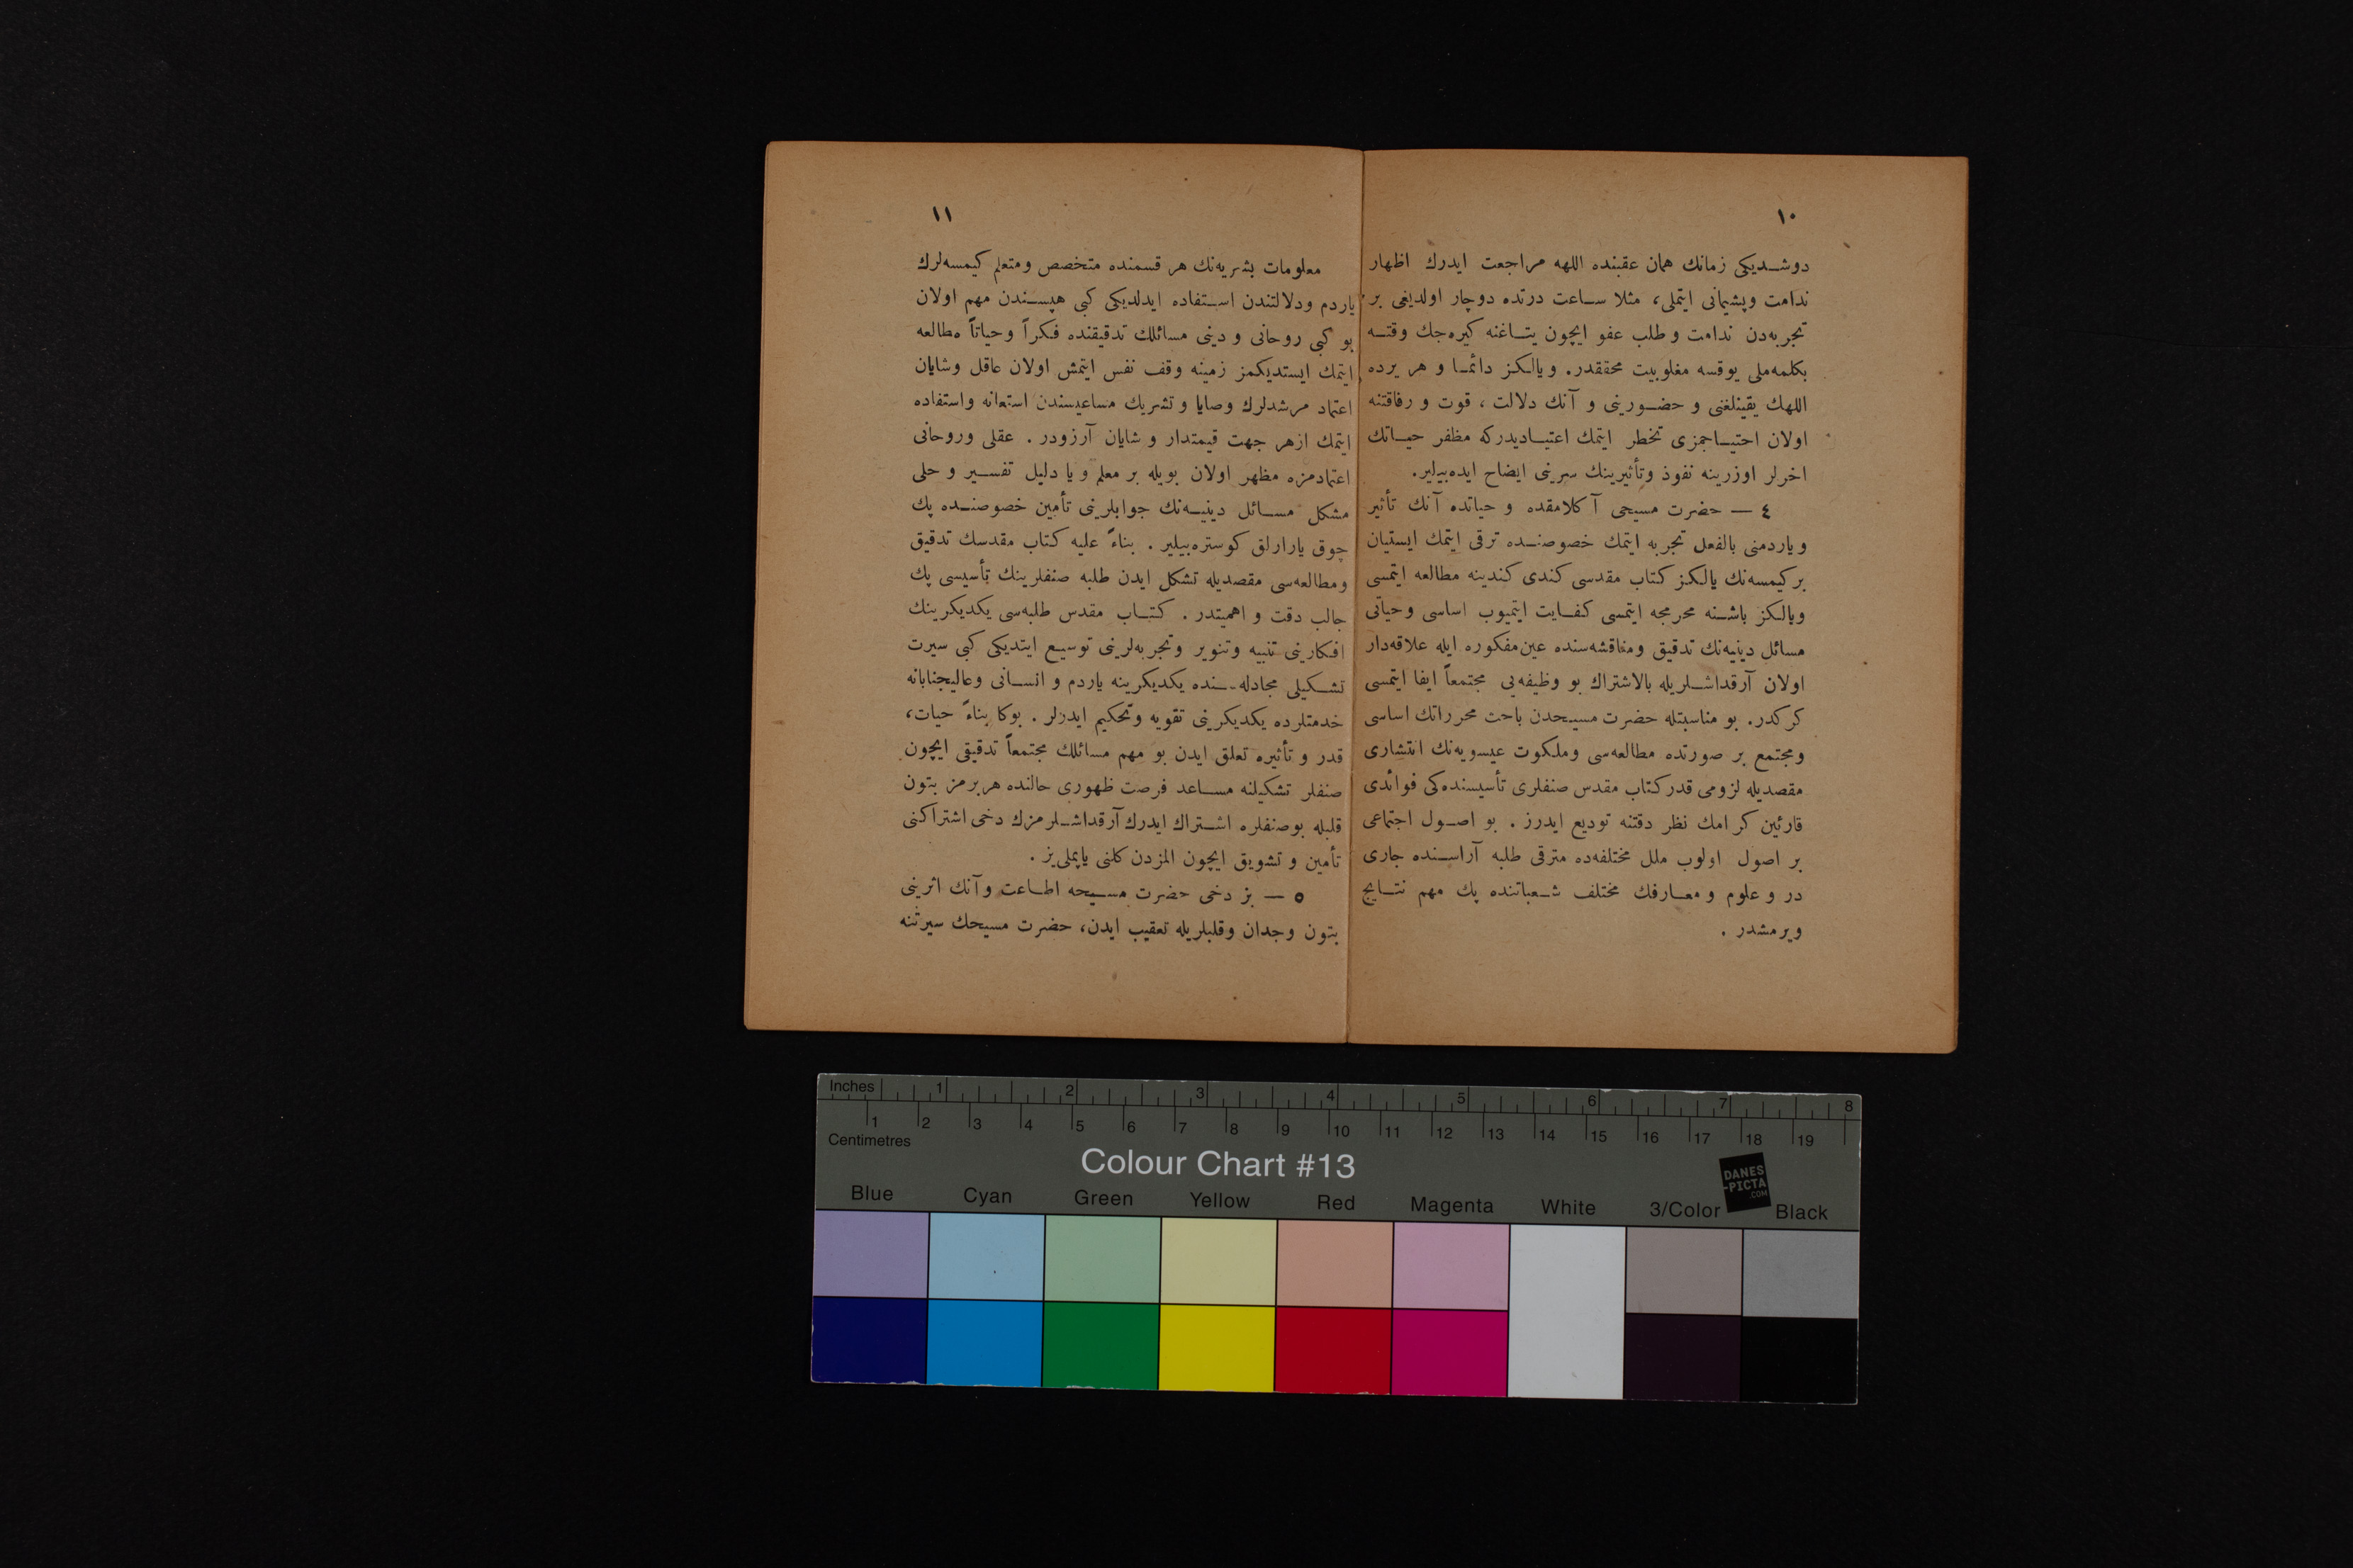 ١٠
دوشديكى زمانك همان عقبنده اللهه مراجعت ايدرك اظهار
ندامت وپشيمانى ايتملى، مثلا ساعت درتده دوچار اولديغى بر
تجربه‌دن ندامت و طلب عفو ايچون يتاغنه كيره‌جك وقته
بكلمه‌ملى يوقسه مغلوبيت محققدر. ويالكز دائما و هر يرده
اللهك يقينلغنى و حضورينى و آنك دلالت ، قوت و رفاقتنه
اولان احتياجمزى تخطر ايتمك اعتياديدركه مظفر حياتك
اخرلر اوزرينه نفوذ وتأثيرينك سرينى ايضاح ايده‌بيلير.
٤ — حضرت مسيحى آكلامقده و حياتده آنك تأثير
وياردمنى بالفعل تجربه ايتمك خصوصنده ترقى ايتمك ايستيان
بر كيمسه‌نك يالكز كتاب مقدسى كندى كندينه مطالعه ايتمسى
ويالكز باشنه محرمجه ايتمسى كفايت ايتميوب اساسى وحياتى
مسائل دينيه‌نك تدقيق ومناقشه‌سنده عين مفكوره ايله علاقه‌دار
اولان آرقداشلريله بالاشتراك بو وظيفه‌يى مجتمعاً ايفا ايتمسى
كركدر. بو مناسبتله حضرت مسيحدن باحث محرراتك اساسى
ومجتمع بر صورتده مطالعه‌سى وملكوت عيسويه‌نك انتشارى
مقصديله لزومى قدر كتاب مقدس صنفلرى تأسيسنده‌كى فوائدى
قارئين كرامك نظر دقتنه توديع ايدرز . بو اصول اجتماعى
بر اصول اولوب ملل مختلفه‌ده مترقى طلبه آراسنده جارى
در و علوم و معارفك مختلف شعباتنده پك مهم نتايج
ويرمشدر .
١١
معلومات بشريه‌نك هر قسمنده متخصص ومتعلم كيمسه‌لرك
ياردم ودلالتندن استفاده ايدلديكى كبى هپسندن مهم اولان
بو كبى روحانى و دينى مسائلك تدقيقنده فكراً وحياتاً مطالعه
ايتمك ايستديكمز زمينه وقف نفس ايتمش اولان عاقل وشايان
اعتماد مرشدلرك وصايا و تشريك مساعيسندن استعانه واستفاده
ايتمك ازهر جهت قيمتدار و شايان آرزودر . عقلى وروحانى
اعتمادمزه مظهر اولان بويله بر معلم و يا دليل تفسير و حلى
مشكل مسائل دينيه‌نك جوابلرينى تأمين خصوصنده پك
چوق يارارلق كوستره‌بيلير . بناءً عليه كتاب مقدسك تدقيق
ومطالعه‌سى مقصديله تشكل ايدن طلبه صنفلرينك تأسيسى پك
جالب دقت و اهميتدر . كتاب مقدس طلبه‌سى يكديكرينك
افكارينى تنبيه وتنوير وتجربه‌لرينى توسيع ايتديكى كبى سيرت
تشكيلى مجادله‌سنده يكديكرينه ياردم و انسانى وعاليجنابانه
خدمتلرده يكديكرينى تقويه وتحكيم ايدرلر . بوكا بناءً حيات،
قدر و تأثيره تعلق ايدن بو مهم مسائلك مجتمعاً تدقيقى ايچون
صنفلر تشكيلنه مساعد فرصت ظهورى حالنده هربرمز بتون
قلبله بوصنفلره اشتراك ايدرك آرقداشلرمزك دخى اشتراكنى
تأمين و تشويق ايچون المزدن كلنى ياپملى‌يز .
٥ — بز دخى حضرت مسيحه اطاعت وآنك اثرينى
بتون وجدان وقلبلريله تعقيب ايدن، حضرت مسيحك سيرتنه
Inches 1 2 3 4 5 6 7 8
1 2 3 4 5 6 7 8 9 10 11 12 13 14 15 16 17 18 19
Centimetres
Colour Chart #13
DANES
-PICTA
.COM
Blue Cyan Green Yellow Red Magenta White 3/Color Black